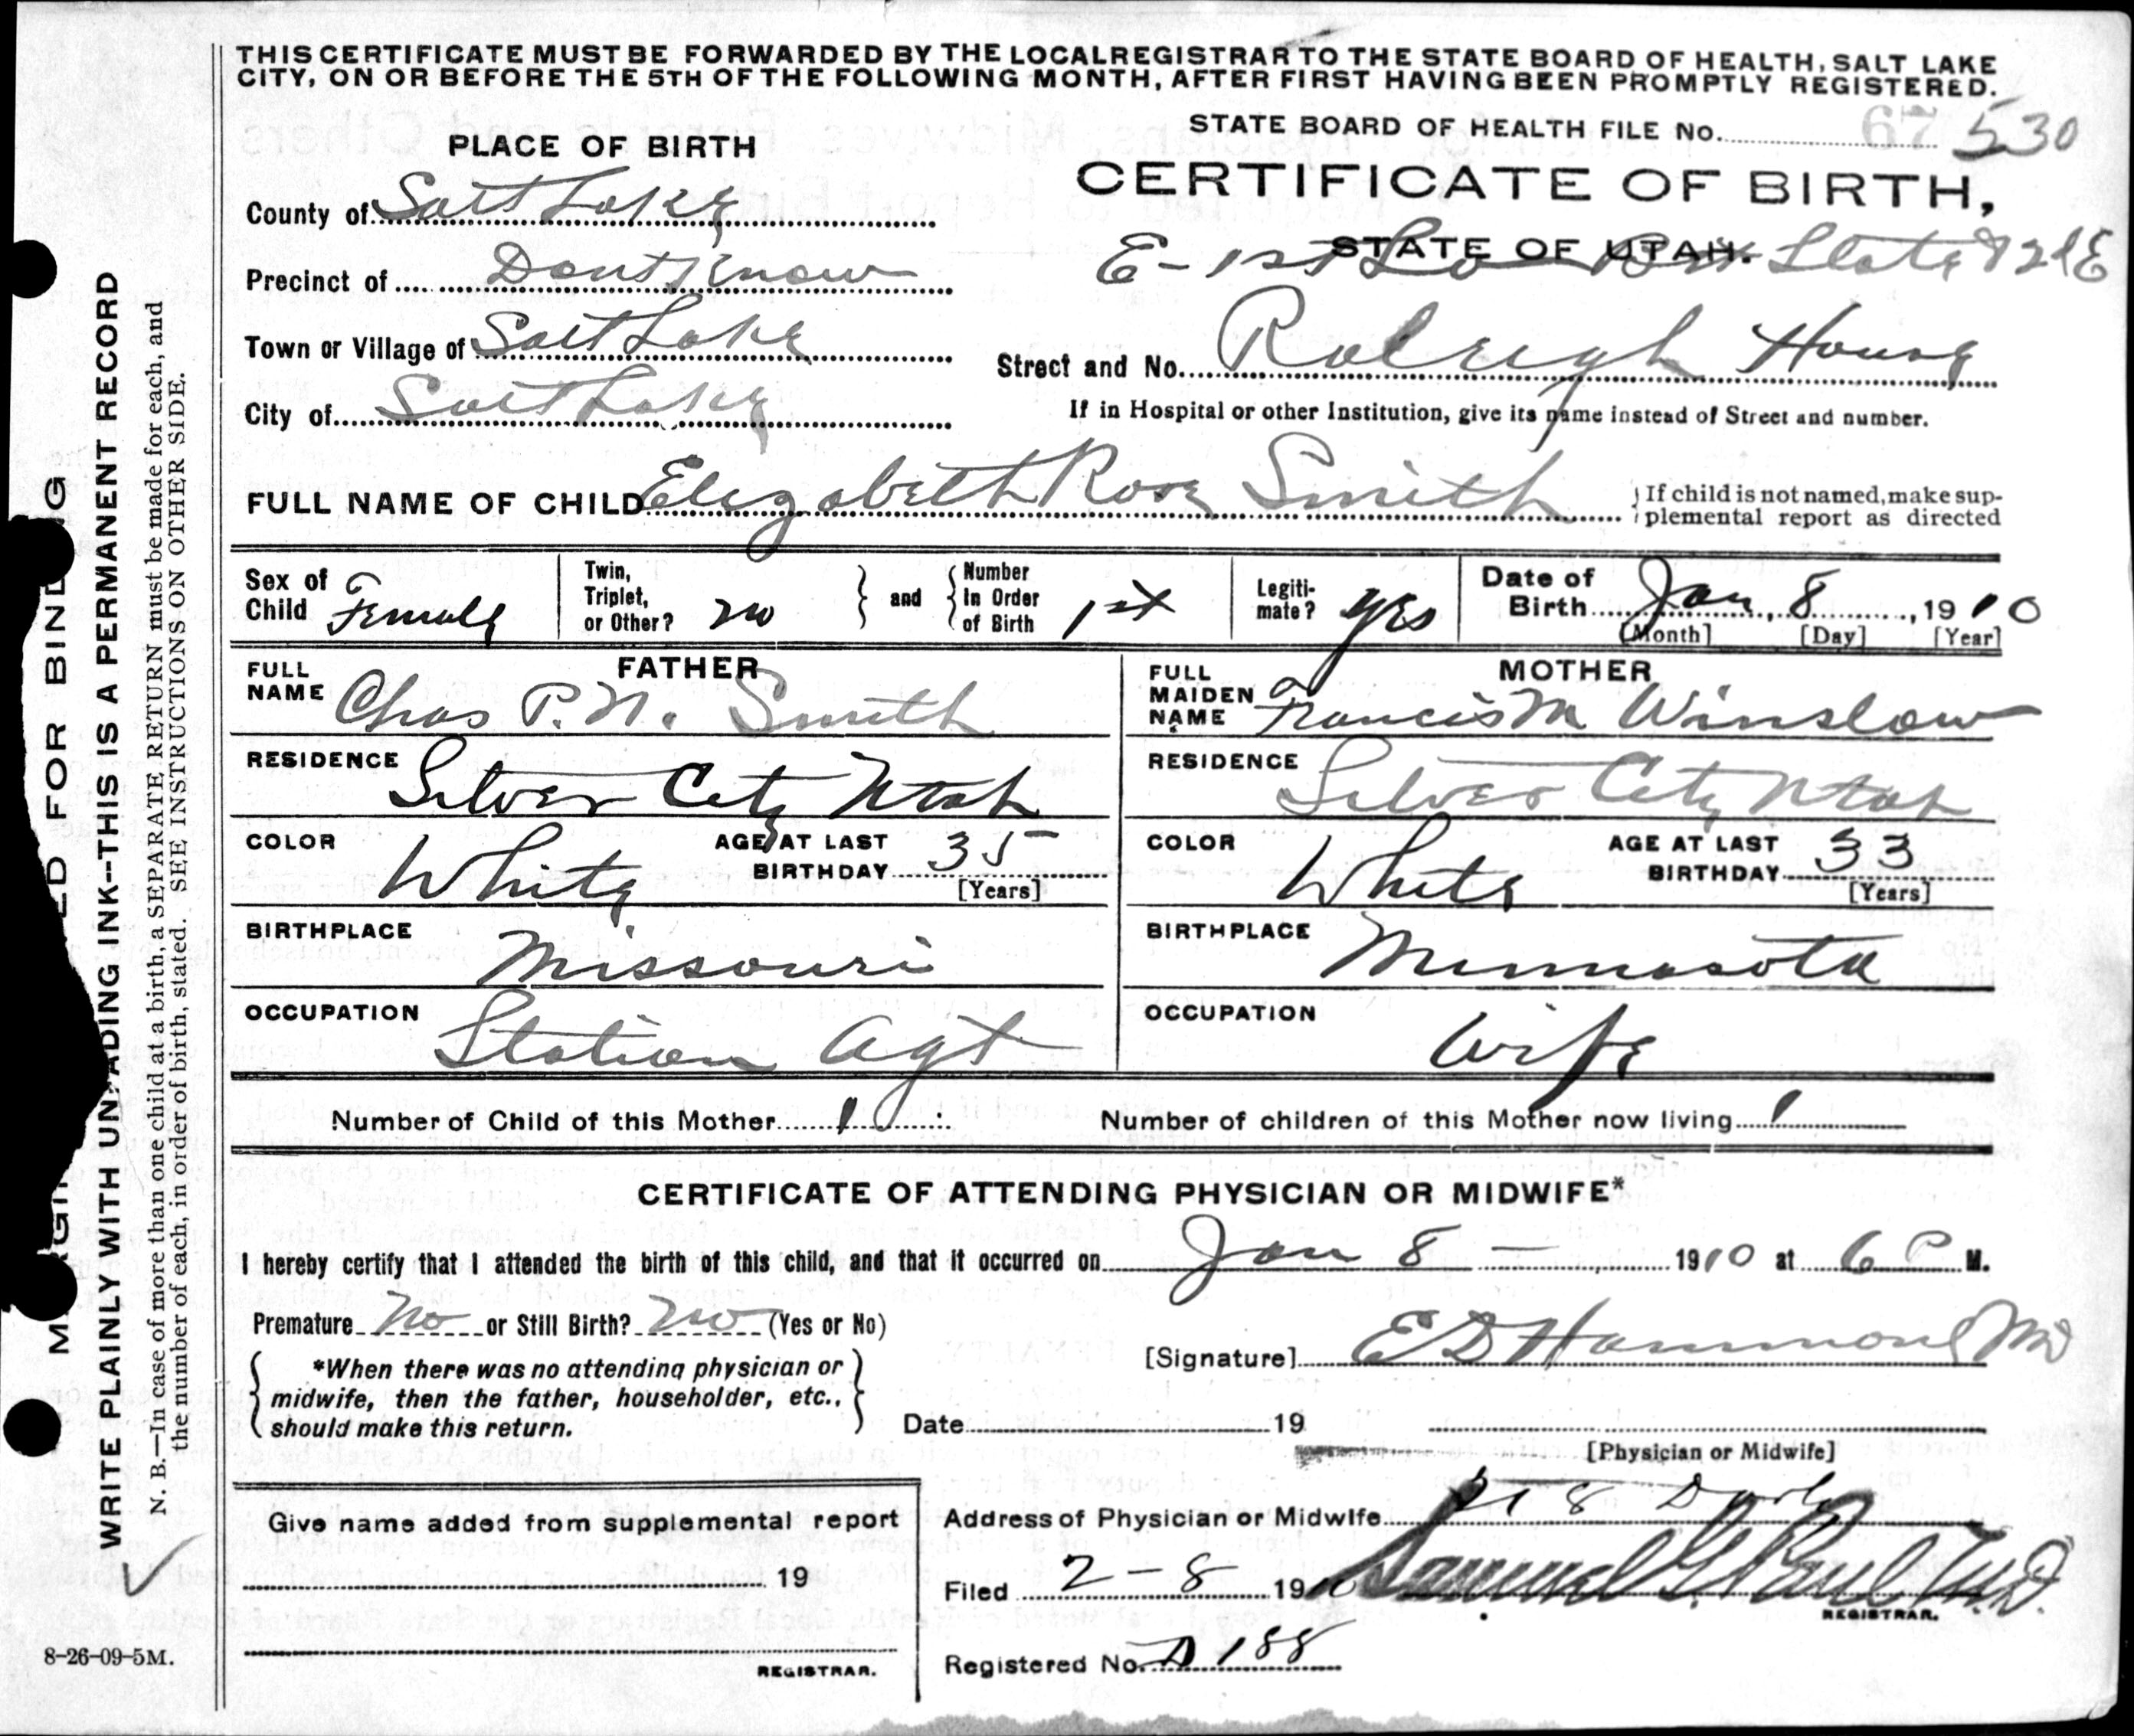 THIS CERTIFICATE MUST BE FORWARDED BY THE LOCAL REGISTRAR TO THE STATE BOARD OF HEALTH, SALT LAKE
CITY, ON OR BEFORE THE 5TH OF THE FOLLOWING MONTH, AFTER FIRST HAVING BEEN PROMPTLY REGISTERED.
STATE BOARD OF HEALTH FILE No. 67 530
PLACE OF BIRTH
CERTIFICATE OF BIRTH,
STATE OF UTAH.
E - 1st So Bet State & 2d E
County of Salt Lake
Precinct of Dont Know
Town or Village of Salt Lake
Street and No. Raleigh House
City of Salt Lake
If in Hospital or other Institution, give its name instead of Street and number.
FULL NAME OF CHILD Elizabeth Rose Smith
If child is not named, make sup-
plemental report as directed
Sex of Child Female
Twin, Triplet, or Other? no
and
Number In Order of Birth 1st
Legiti-mate? yes
Date of Birth Jan, 8, 1910
[Month] [Day] [Year]
FATHER
FULL NAME Chas P. N. Smith
RESIDENCE Silver City Utah
COLOR White
AGE AT LAST BIRTHDAY 35
[Years]
BIRTHPLACE Missouri
OCCUPATION Station Agt
MOTHER
FULL MAIDEN NAME Francis M Winslow
RESIDENCE Silver City Utah
COLOR White
AGE AT LAST BIRTHDAY 33
[Years]
BIRTHPLACE Minnesota
OCCUPATION Wife
Number of Child of this Mother 1
Number of children of this Mother now living 1
CERTIFICATE OF ATTENDING PHYSICIAN OR MIDWIFE*
I hereby certify that I attended the birth of this child, and that it occurred on Jan 8 1910 at 6 P M.
Premature No or Still Birth? No (Yes or No)
*When there was no attending physician or
midwife, then the father, householder, etc.,
should make this return.
[Signature] E D Hammond MD
Date 19
[Physician or Midwife]
Give name added from supplemental report
19
REGISTRAR.
Address of Physician or Midwife 218 Dooly
Filed 2-8 1910 Samuel G. Paul M.D.
REGISTRAR.
Registered No. D 188
MARGIN RESERVED FOR BINDING
WRITE PLAINLY WITH UNFADING INK--THIS IS A PERMANENT RECORD
N. B.—In case of more than one child at a birth, a SEPARATE RETURN must be made for each, and
the number of each, in order of birth, stated. SEE INSTRUCTIONS ON OTHER SIDE.
8-26-09-5M.